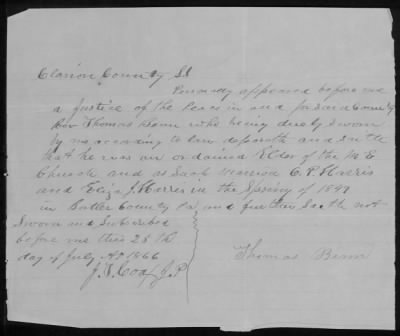 Clarion County SS
Personaly appeared before me
a Justice of the Peace in and for Said County
Rev Thomas who being duely Sworn
by me according to law deposeth and Saith
that he was an ordained Elder of the M E
Church and as Such married C. P. Harris
and Eliza J. Harris in the Spring of 1849
in Butler County Pa and further Saith not
Sworn and Subscribed
before me this 25 th
day of July AD 1866
J. P.
Thomas